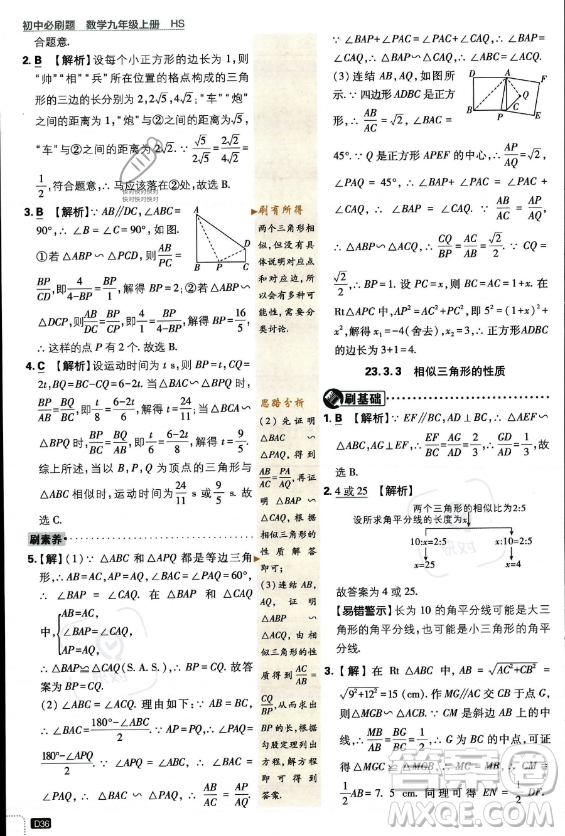 初中必刷题 数学九年级上册 HS
合题意.
2. B 【解析】设每个小正方形的边长为 1,则
“帅”“相”“兵”所在位置的格点构成的三角
形的三边的长分别为 2,2√5,4√2;“车”“炮”
之间的距离为 1,“炮”②之间的距离为√5,
“车”②之间的距离为 2√2. ∵ √5/2√5 = 2√2/4√2 =
1/2,符合题意,∴马应该落在②处,故选 B.
3. B 【解析】∵ AB∥DC,∠ABC=
90°,∴ ∠B=∠C=90°.如图.
①若△ABP∽△PCD,则 AB/PC
= BP/CD,即 4/(4-BP) = BP/1,解得 BP=2;②若△ABP∽
△DCP,则 AB/DC = BP/CP,即 4/1 = BP/(4-BP),解得 BP= 16/5,
∴ 这样的点 P 有 2 个.故选 B.
4. C 【解析】设运动时间为 t s,则 BP=t,CQ=
2t,BQ=BC-CQ=6-2t.当△BAC∽△BPQ 时,
BP/BA = BQ/BC,即 t/8 = (6-2t)/6,解得 t= 24/11;当△BAC∽
△BQP 时, BP/BC = BQ/BA,即 t/6 = (6-2t)/8,解得 t= 9/5.
综上所述,当以 B,P,Q 为顶点的三角形与
△ABC 相似时,运动时间为 24/11 s 或 9/5 s,故
选 C.
刷素养
5.【解】(1)∵ △ABC 和△APQ 都是等边三角
形,∴ AB=AC,AP=AQ,∠BAC=∠PAQ=60°,
∴ ∠BAP=∠CAQ.在△ABP 和△ACQ 中,
AB=AC,
∠BAP=∠CAQ,
AP=AQ,
∴ △BAP≌△CAQ(S.A.S.),∴ BP=CQ,
故答案为 BP=CQ.
(2)∠ABC=∠ACQ.理由如下:∵ AB=BC,
∴ ∠BAC= (180°-∠ABC)/2.∵ AP=PQ,∴ ∠PAQ=
(180°-∠APQ)/2.∵ ∠ABC=∠APQ,∴ ∠BAC=
∠PAQ,∴ △BAC∽△PAQ,∴ BA/PA = AC/AQ.
刷有所得
两个三角形相
似,但没有具
体说明对应点
和对应边,所
以有多种可能
性,需要分
类讨论.
思路分析
(2)先证明
△BAC∽
△PAQ,得到
AB/AC = PA/AQ,再证明
△BAP∽
△CAQ,根据
相似三角形
的性质解答
即可;
(3)连结AB,
AQ,证明
△BAP∽
△CAQ,根据
相似三角形性
质得到 AC/AB =
CQ/BP,从而求出
BP的长,根据
勾股定理列出
方程,解方程
即可得到
答案.
∵ ∠BAP+∠PAC=∠PAC+∠CAQ,
∴ ∠BAP=∠CAQ,∴ △BAP∽
△CAQ,∴ ∠ABC=∠ACQ.
(3)连结 AB,AQ,如图.
∵ 四边形 ADBC 是正方形,
∴ AB/AC =√2,∠BAC=
45°.∵ Q 是正方形 APEF 的中心,∴ AP/AQ =√2,
∠PAQ=45°,∴ ∠BAP+∠PAC=∠PAC+
∠CAQ,∴ ∠BAP=∠CAQ.∵ AB/AC = AP/AQ =√2,
∴ △ABP∽△ACQ,∴ CQ/BP = AC/AB = 1/√2.∵ CQ=
√2/2,∴ BP=1.设 PC=x,则 BC=AC=1+x.在
Rt△APC 中,AP²=AC²+PC²,即 5²=(1+x)²+
x²,解得 x₁=-4(舍去),x₂=3,∴正方形ADBC
的边长为 3+1=4.
23.3.3 相似三角形的性质
刷基础
1. B 【解析】∵ EF∥BC,AD⊥BC,∴ △AEF∽
△ABC,AG⊥EF,∴ EF/BC = AG/AD.∵ AG/GD = 2/1,∴ AG/AD = 2/3.故
选 B.
2. 4 或 25 【解析】
两个三角形的相似比为2:5
设所求角平分线的长度为x
10:x=2:5
x=25
x:10=2:5
x=4
故答案为 4 或 25.
【易错警示】长为 10 的角平分线可能是大三
角形的角平分线,也可能是小三角形的角平
分线.
3.【解】在 Rt △ABC 中,AB= √(AC²+CB²) =
√(9²+12²) =15(cm).作 MG∥AC 交 CB 于点 G,
则 MG⊥BC.∵ CM 是斜边 AB 的中线,
∴ M 是 AB 的中点,∴ G 是 BC 的中点,可证
1/2 AB=7.5 cm.
D36